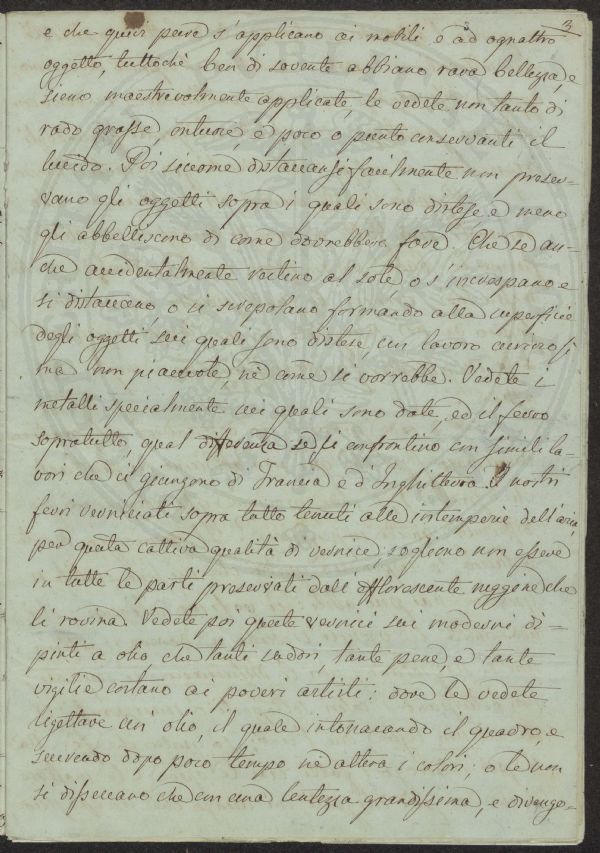 3
e che quivi pure s'applicano ai mobili e ad ognattro
oggetto, tuttochè ben di sovente abbiano rara bellezza, e
sieno maestrevolmente applicate, le vedete non tanto di
rado grasse, ontuose, e poco o punto conservanti il
lucido. Poi siccome distaccansi facilmente non preser-
vano gli oggetti sopra i quali sono distese e meno
gli abbelliscono di come dovrebbero fare. Che se an-
che accidentalmente restino al sole, o s'increspano e
si distaccano, o si screpolano formando alla superficie
degli oggetti sui quali sono distese, un lavoro curioso sì
ma non piacevole, nè come si vorrebbe. Vedete i
metalli specialmente sui quali sono date, ed il ferro
sopratutto, qual differenza se si confrontino con simili la-
vori che ci giungono di Francia e d'Inghilterra. I nostri
ferri verniciati sopra tutto tenuti alle intemperie dell'aria,
per questa cattiva qualità di vernice, sogliono non essere
in tutte le parti preservati dall'efflorescente ruggine che
li rovina. Vedete poi queste vernici sui moderni di-
pinti a olio che tanti sudori, tante pene, e tante
vigilie costano ai poveri artisti: dove le vedete
rigettare un'olio, il quale intonacando il quadro, e
scorrendo dopo poco tempo ne altera i colori; o le non
si disseccano che con una lentezza grandissima, e divengo-